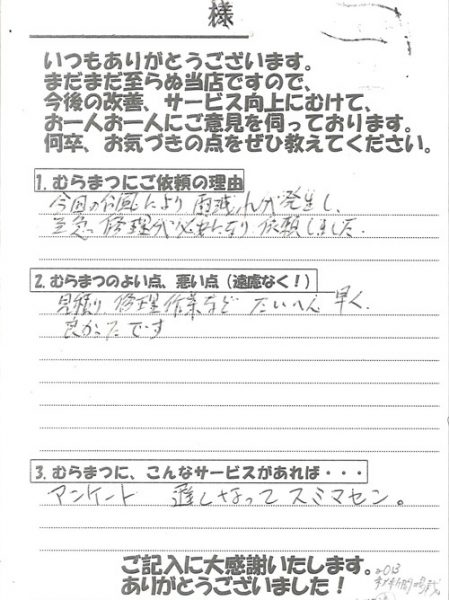 様
いつもありがとうございます。
まだまだ至らぬ当店ですので、
今後の改善、サービス向上にむけて、
お一人お一人にご意見を伺っております。
何卒、お気づきの点をぜひ教えてください。
1. むらまつにご依頼の理由
今回の台風により雨残れが発生し、
至急、修理が必要となり依頼しました。
2. むらまつのよい点、悪い点（遠慮なく！）
見積り、修理作業など たいへん 早く、
良かったです
3. むらまつに、こんなサービスがあれば・・・
アンケート 遅しなって スミマセン。
ご記入に大感謝いたします。
ありがとうございました！
2013